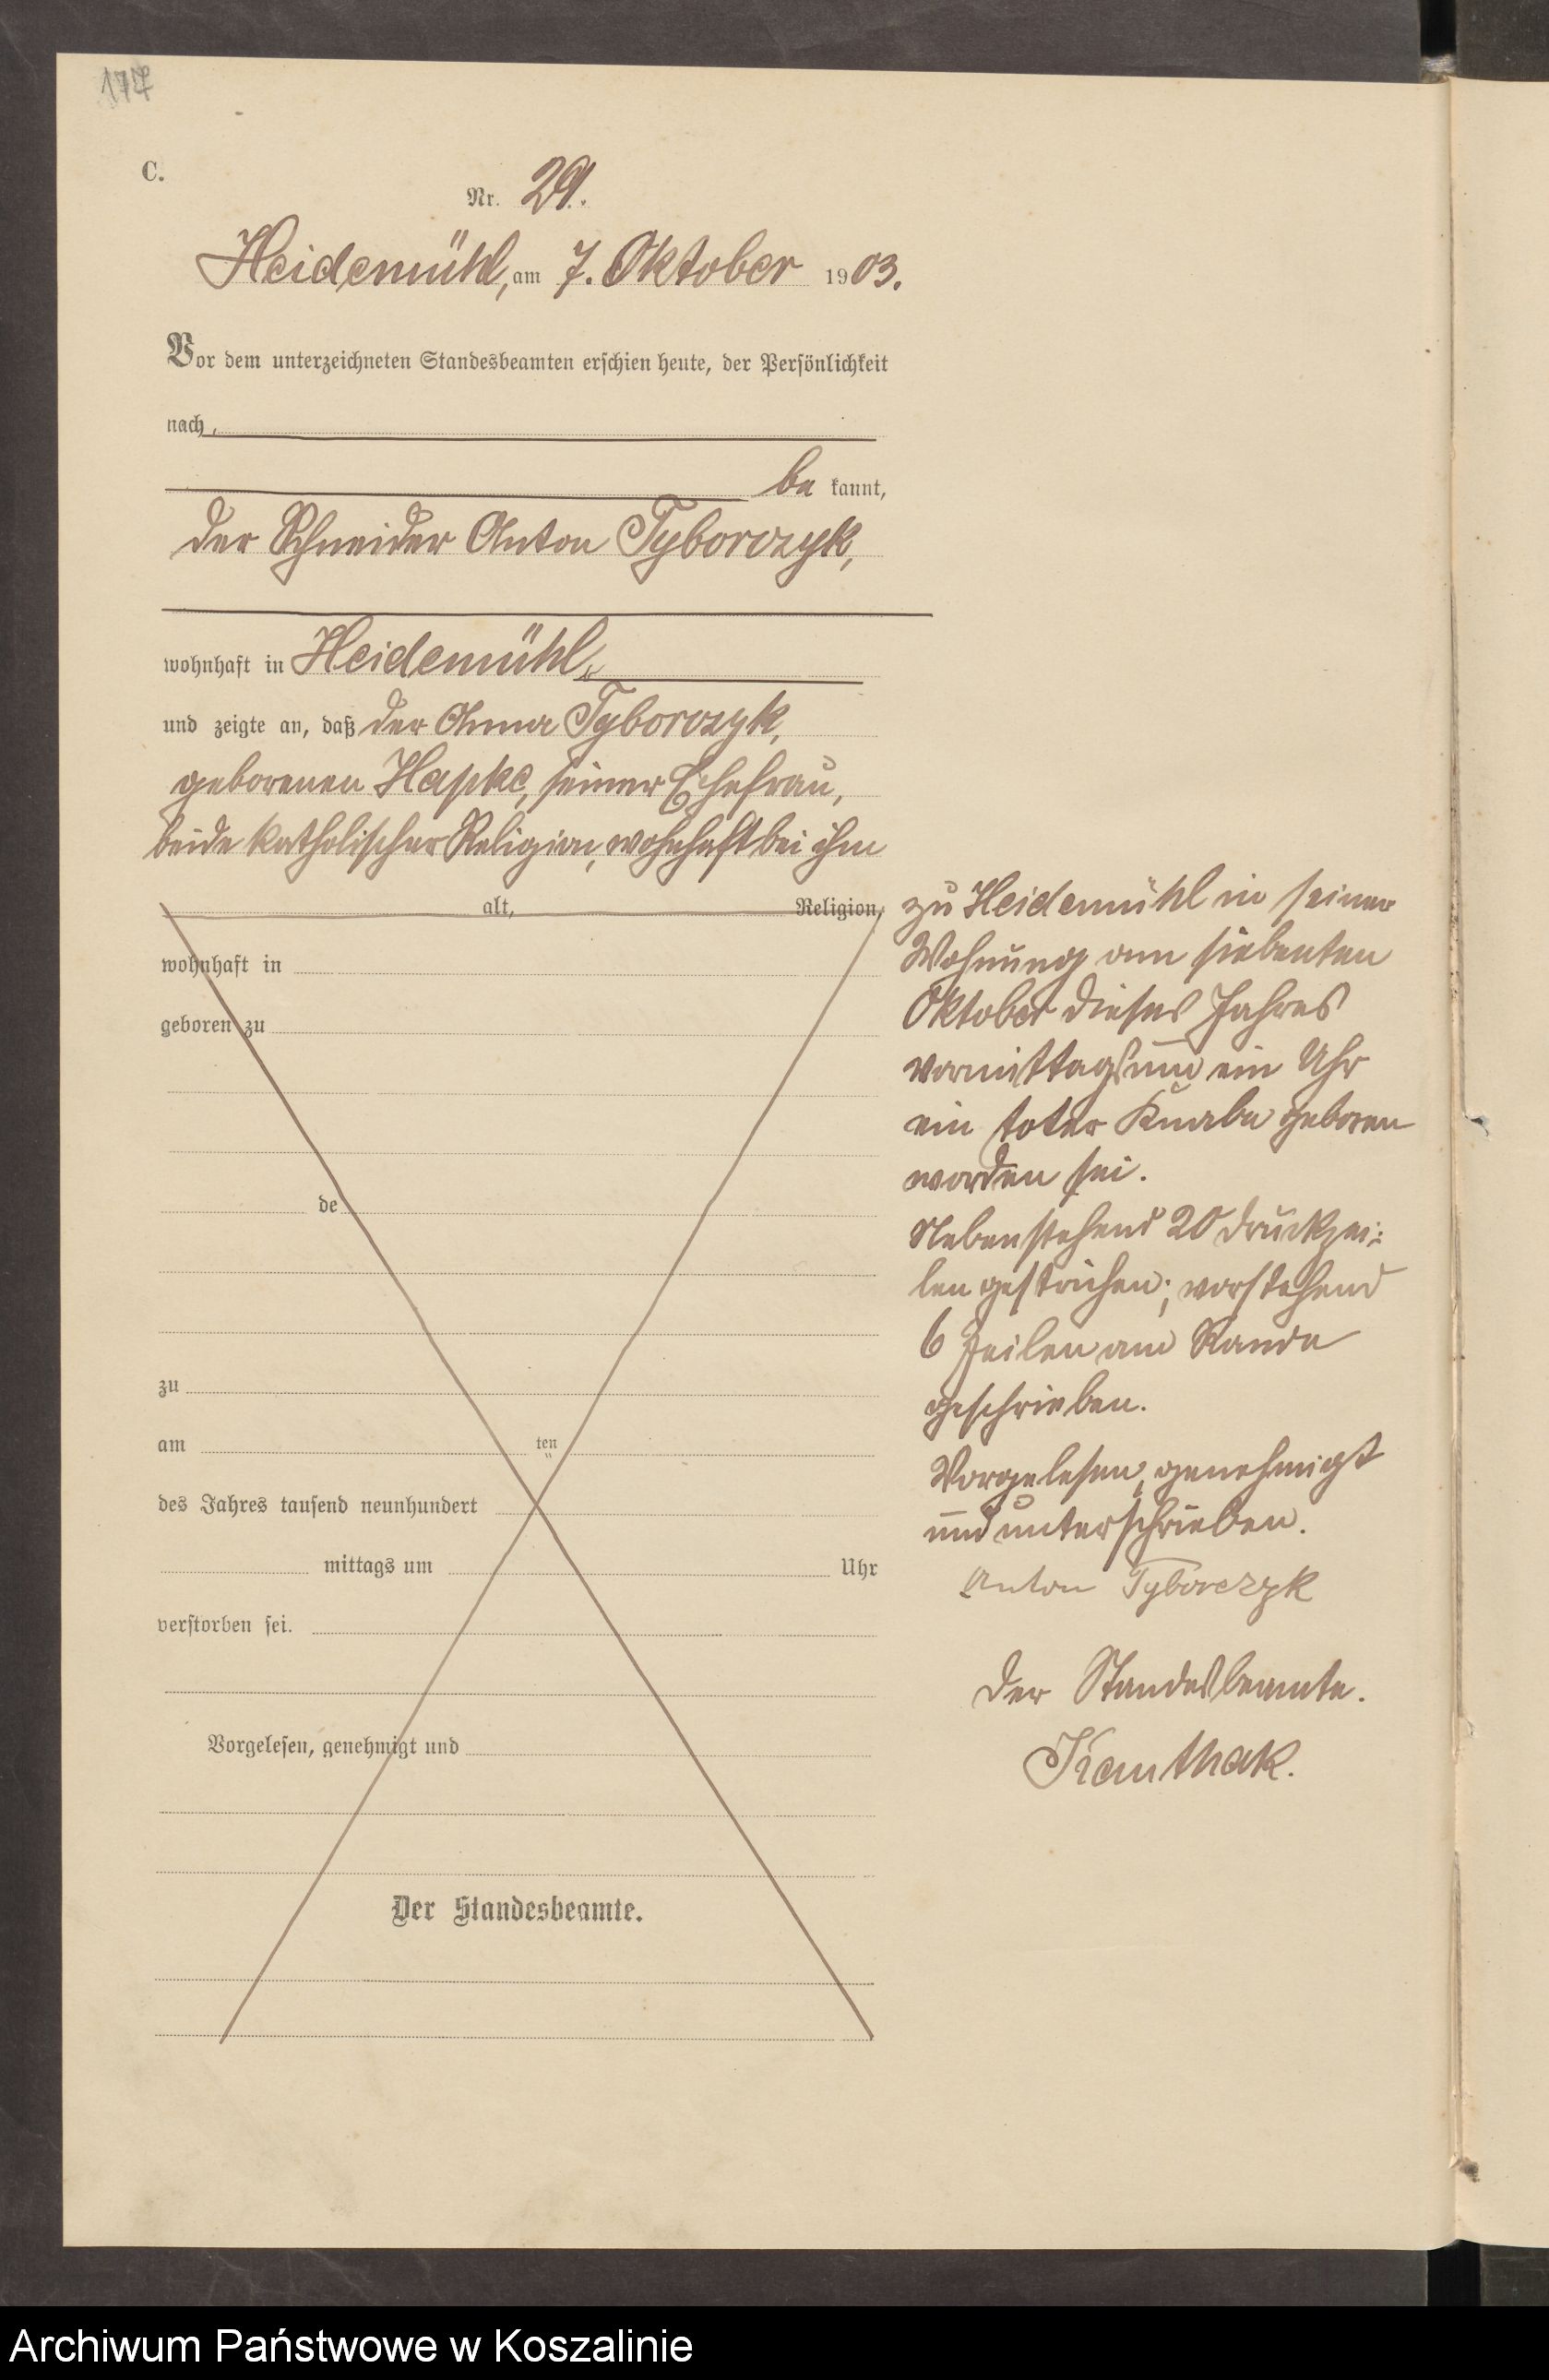 177
C.
Nr. 29.
Heidemühl, am 7. Oktober 1903.
Vor dem unterzeichneten Standesbeamten erschien heute, der Persönlichkeit
nach,
be kannt,
der Schneider Anton Tyborczyk,
wohnhaft in Heidemühl,
und zeigte an, daß der Anna Tyborczyk,
geborenen Hapke, seiner Ehefrau,
beide katholischer Religion, wohnhaft bei ihm
alt, Religion,
wohnhaft in
geboren zu
de
zu
am ten
des Jahres tausend neunhundert
mittags um Uhr
verstorben sei.
Vorgelesen, genehmigt und
Der Standesbeamte.
zu Heidemühl in seiner
Wohnung am siebenten
Oktober dieses Jahres
vormittags um ein Uhr
ein toter Knabe geboren
worden sei.
Nebenstehend 20 Druckzei-
len gestrichen; vorstehend
6 Zeilen am Rande
geschrieben.
Vorgelesen, genehmigt
und unterschrieben.
Anton Tyborczyk
Der Standesbeamte.
Kanthak.
Archiwum Państwowe w Koszalinie